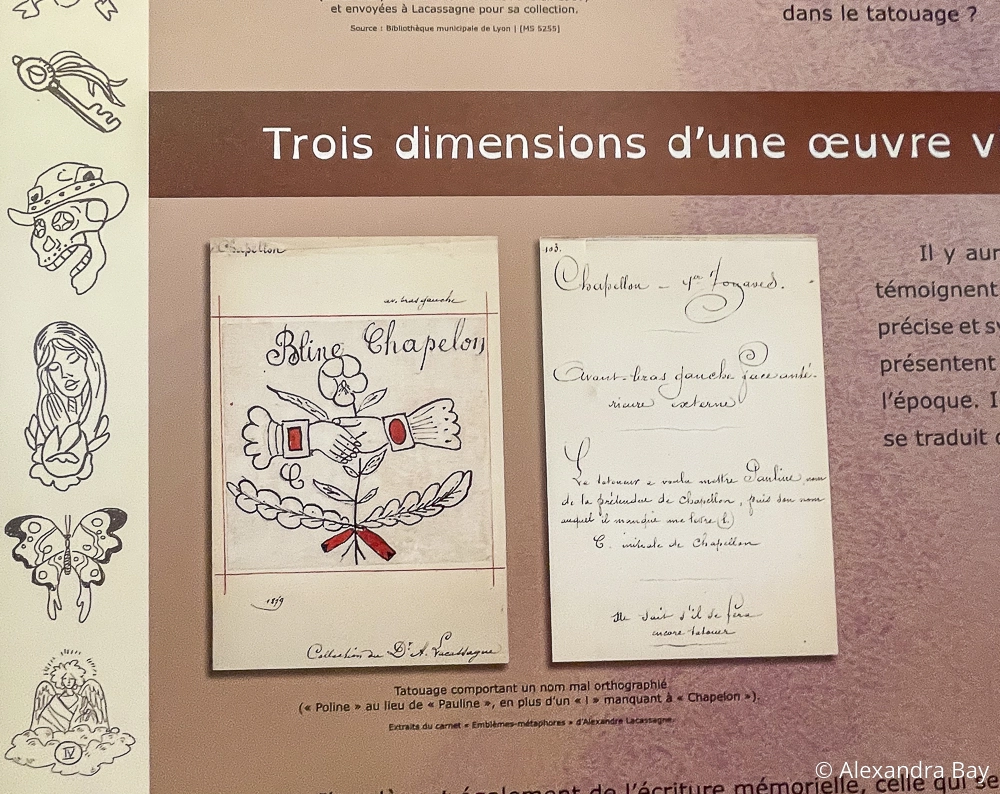 et envoyées à Lacassagne pour sa collection.
Source : Bibliothèque municipale de Lyon | [MS 5255]
dans le tatouage ?
Trois dimensions d'une œuvre v
Chapellon
av. bras gauche
Bline Chapelon
C
1859
Collection du Dr A. Lacassagne
103.
Chapellon — 4er Zouaves.
Avant-bras gauche face anté-
rieure externe
Le tatoueur a voulu mettre Pauline, nom
de la prétendue de Chapellon, puis son nom
auquel il manque une lettre (l)
C. initiale de Chapellon
Ne sait s'il se fera
encore tatouer
Il y aur
témoignent
précise et sy
présentent
l'époque. I
se traduit
Tatouage comportant un nom mal orthographié
(« Poline » au lieu de « Pauline », en plus d'un « l » manquant à « Chapelon »).
Extraits du carnet « Emblèmes-métaphores » d'Alexandre Lacassagne.
également de l'écriture mémorielle, celle qui se
IV
© Alexandra Bay